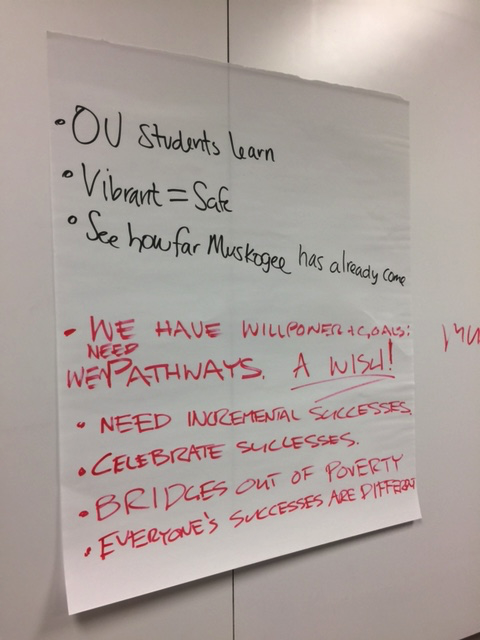 • OU Students learn
• Vibrant = Safe
• See how far Muskogee has already come
• WE HAVE WILLPOWER + GOALS:
NEED
WE PATHWAYS. A WISH!
• NEED INCREMENTAL SUCCESSES.
• CELEBRATE SUCCESSES.
• BRIDGES OUT OF POVERTY
• EVERYONE'S SUCCESSES ARE DIFFERENT